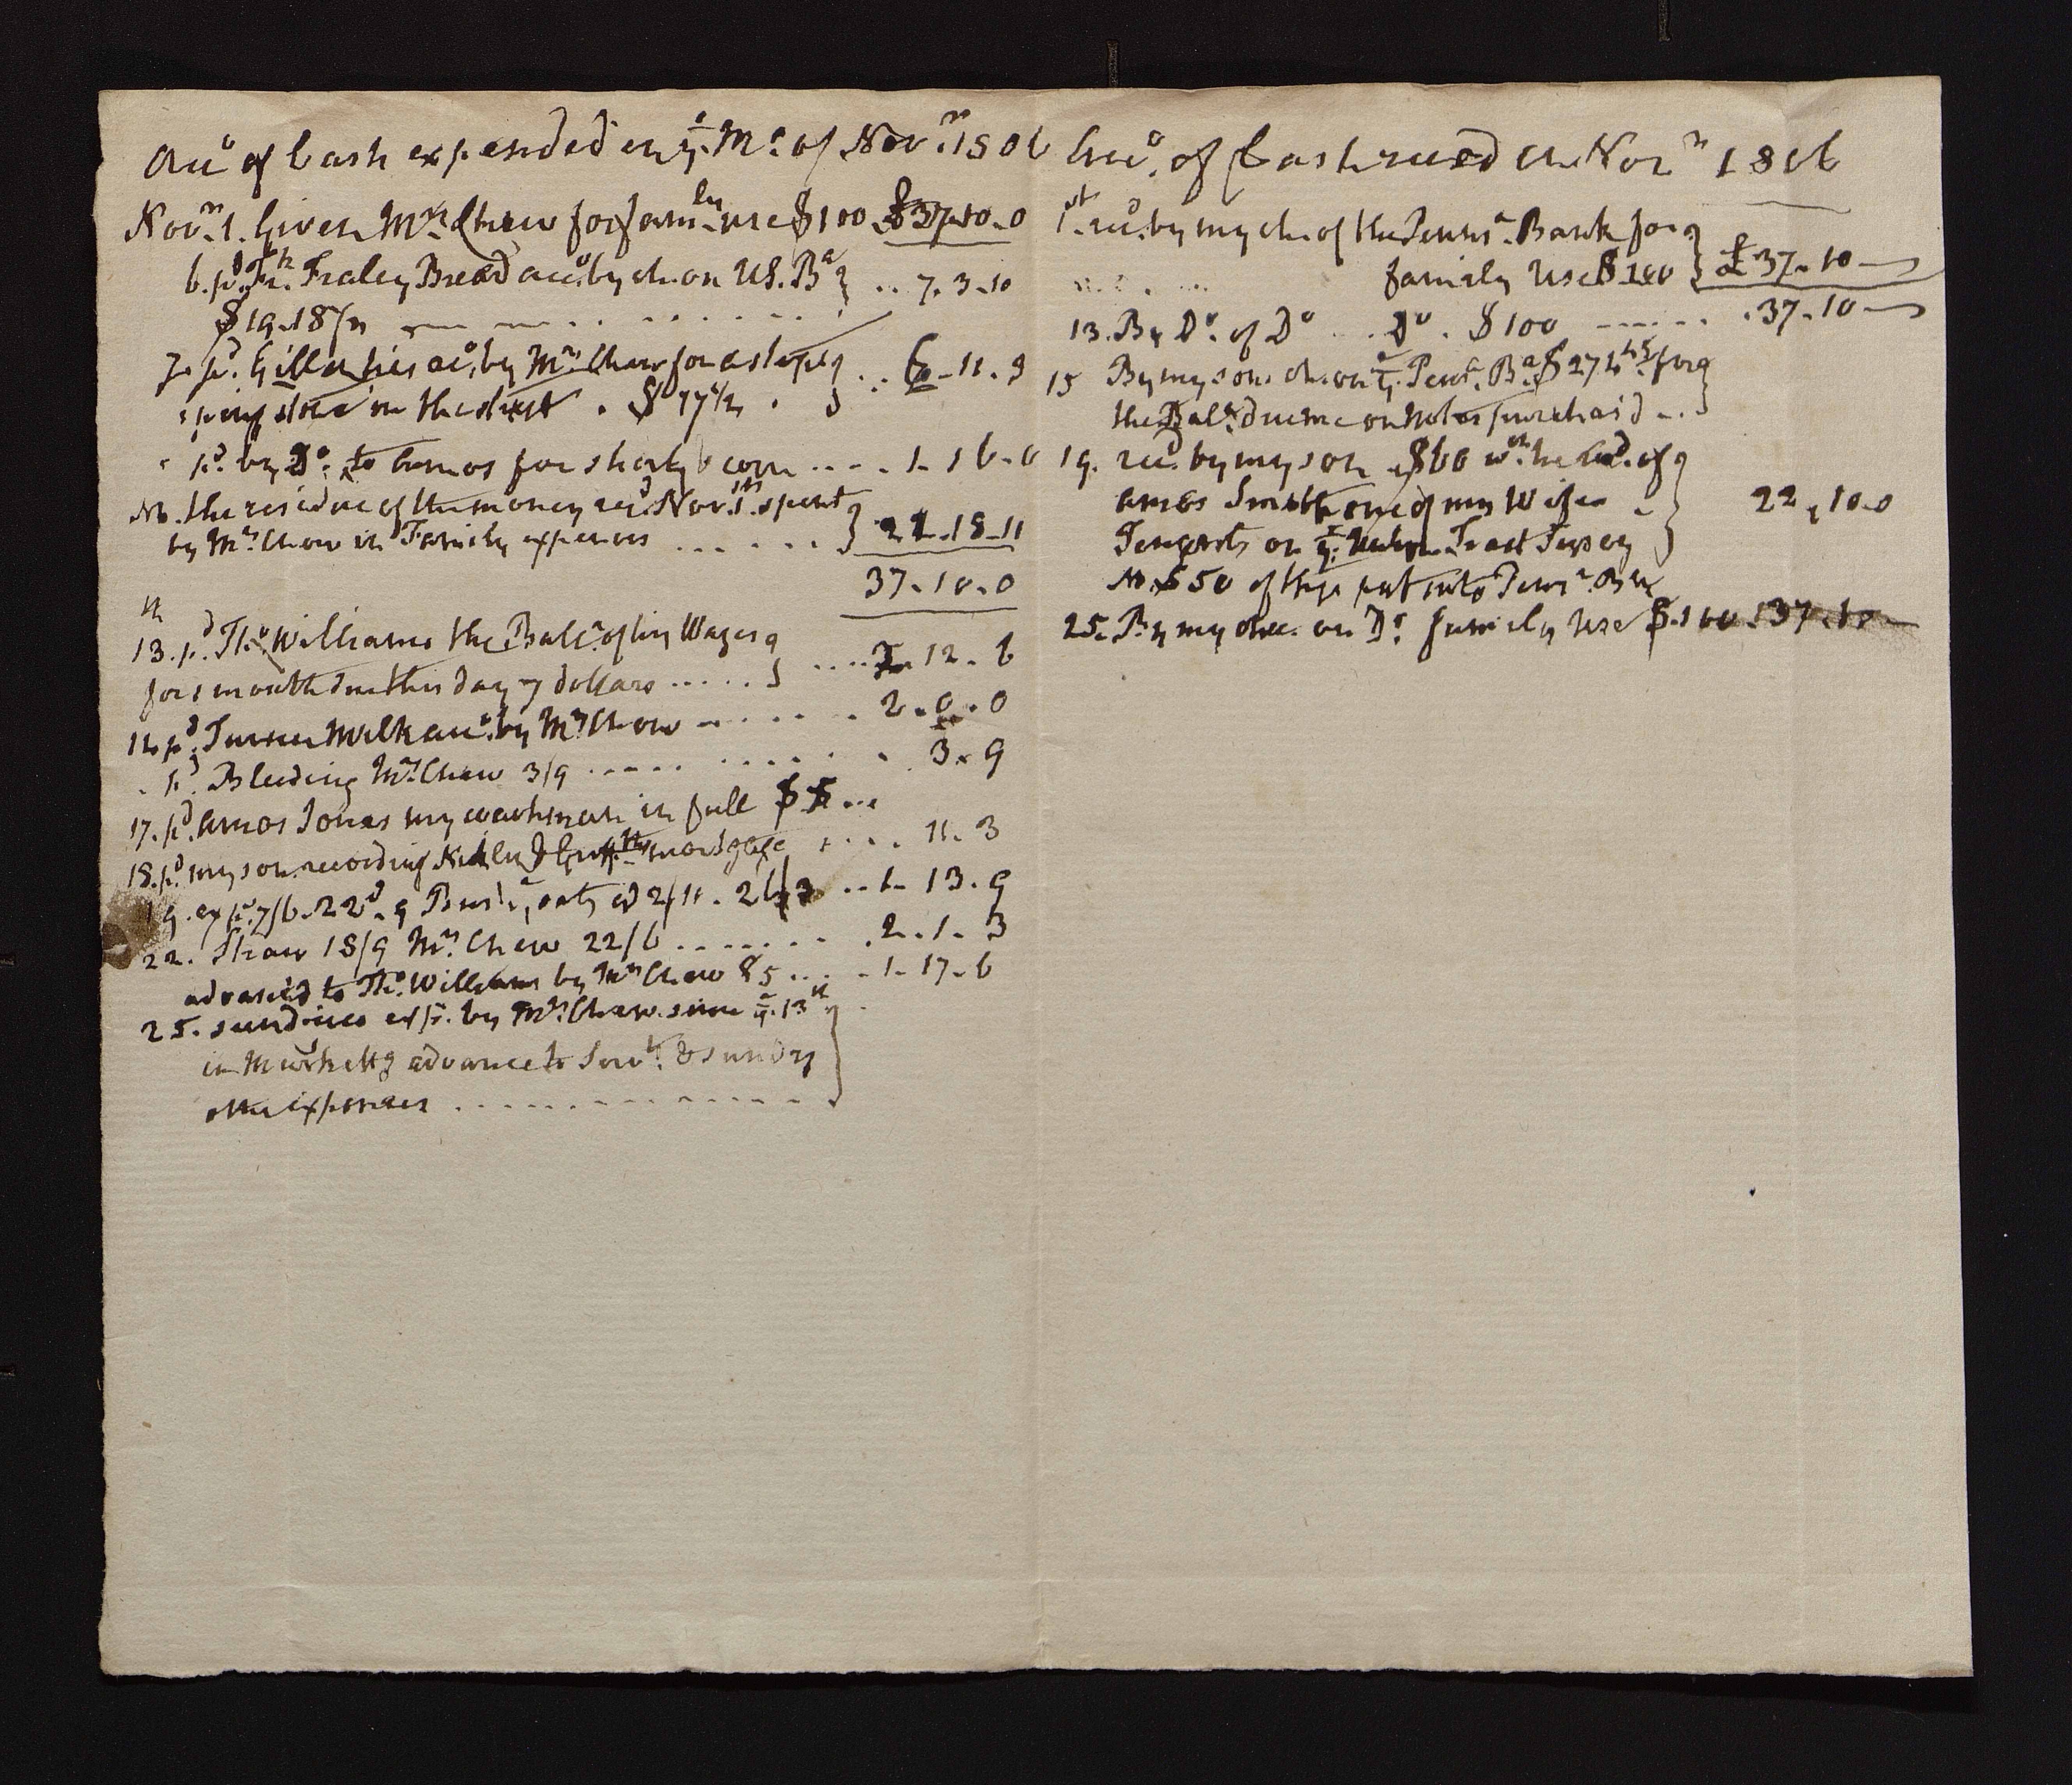 Accᵒ of Cash expended in yᵉ Mᵒ of Novʳ 1806
Novʳ 1. Given Mʳˢ Chew for family use $100 £37-10-0
6. pᵈ Fraley Bread accᵒ by ch. on US. Bᵃ } .. 7. 3-10
$19.18/
7. pᵈ his accᵒ by Mʳˢ Chew for a
in the . $17½ . } .. 6-11-3
" pᵈ by Dᵒ to Amos for corn .... 1-16-0
NB. the residue of the money recᵈ Nov. 1ˢᵗ spent }
by Mʳˢ Chew in Family expences ...... 21-18-11
37-10-0
13ᵗʰ pᵈ Thᵒ Williams the Balᶜᵉ of his Wages }
for 1 month due this day 7 dollars ..... } .... 2-12-6
14 pᵈ Turner Milk accᵒ by Mʳˢ Chew ...... 2-0-0
" pᵈ Bleeding Mʳˢ Chew 3/9 ........... 3-9
17. pᵈ Amos Jones my washman in full $5 ...
18. pᵈ my son recording mortgage .... 11-3
19. 7/6. 9 Bushˢ oats @ 2/11. 26/3 .. 1-13-9
22. Straw 18/9 Mʳˢ Chew 22/6 ....... 2-1-3
advanced to Thᵒ Williams by Mʳˢ Chew $5 ... 1-17-6
25. sundries expᵈ by Mʳˢ Chew since yᵉ 13ᵗʰ }
in Marketts advance to Servᵗˢ & sundry
other expences ............... }
Accᵒ of Cash recᵈ in Novʳ 1806
1ˢᵗ recᵈ by my ch. of the Pennsᵃ Bank for }
family Use $100 } £37-10-
13. By Dᵒ of Dᵒ .. Dᵒ . $100 ------ 37-10-
15 By my sons ch. on yᵉ Pensᵃ Bᵃ $ for }
the Balᶜᵉ due me on Notes purchasd ... }
19. recᵈ by my son $60 wᶜʰ he recᵈ of }
Amos Smith one of my Wifes } 22-10-0
Tenants on yᵉ Tract Jersey }
NB $50 of this put into Pensᵃ Bk
25. By my chec. on Dᵒ family Use $.100. 37-10-